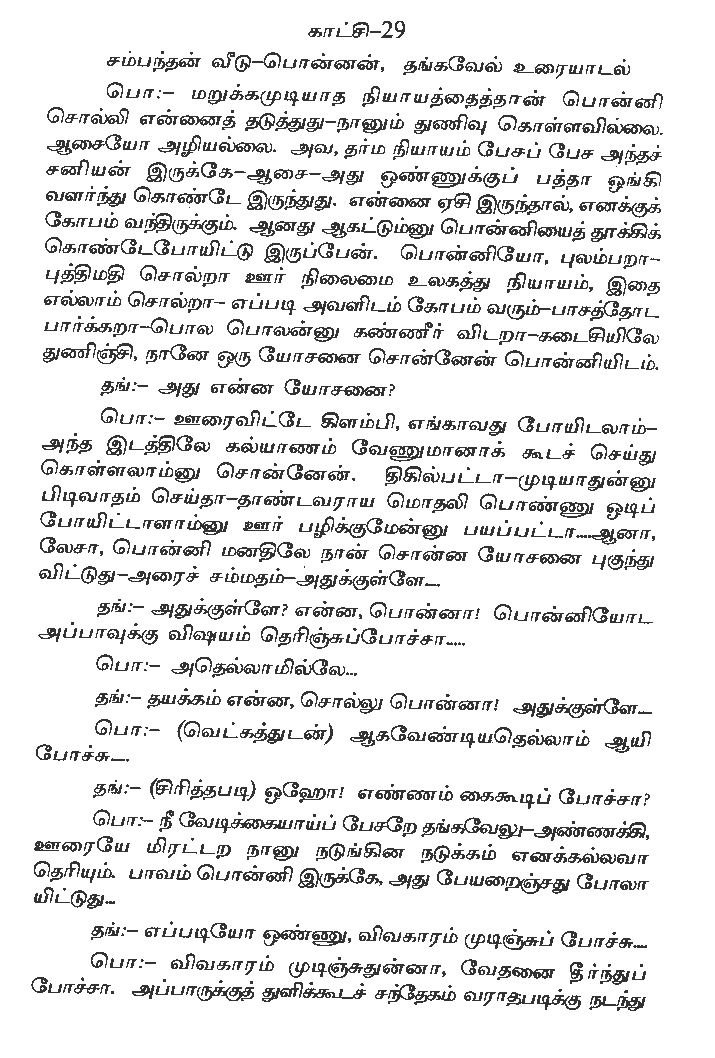 காட்சி–29
சம்பந்தன் வீடு–பொன்னன், தங்கவேல் உரையாடல்
பொ:– மறுக்கமுடியாத நியாயத்தைத்தான் பொன்னி
சொல்லி என்னைத் தடுத்துது–நானும் துணிவு கொள்ளவில்லை.
ஆசையோ அழியல்லை. அவ, தர்ம நியாயம் பேசப் பேச அந்தச்
சனியன் இருக்கே–ஆசை–அது ஒண்ணுக்குப் பத்தா ஓங்கி
வளர்ந்து கொண்டே இருந்துது. என்னை ஏசி இருந்தால், எனக்குக்
கோபம் வந்திருக்கும். ஆனது ஆகட்டும்னு பொன்னியைத் தூக்கிக்
கொண்டேபோயிட்டு இருப்பேன். பொன்னியோ, புலம்பறா–
புத்திமதி சொல்றா ஊர் நிலைமை உலகத்து நியாயம், இதை
எல்லாம் சொல்றா– எப்படி அவளிடம் கோபம் வரும்–பாசத்தோட
பார்க்கறா–பொல பொலன்னு கண்ணீர் விடறா–கடைசியிலே
துணிஞ்சி, நானே ஒரு யோசனை சொன்னேன் பொன்னியிடம்.
தங்:– அது என்ன யோசனை?
பொ:– ஊரைவிட்டே கிளம்பி, எங்காவது போயிடலாம்–
அந்த இடத்திலே கல்யாணம் வேணுமானாக் கூடச் செய்து
கொள்ளலாம்னு சொன்னேன். திகில்பட்டா–முடியாதுன்னு
பிடிவாதம் செய்தா–தாண்டவராய மொதலி பொண்ணு ஓடிப்
போயிட்டாளாம்னு ஊர் பழிக்குமேன்னு பயப்பட்டா....ஆனா,
லேசா, பொன்னி மனதிலே நான் சொன்ன யோசனை புகுந்து
விட்டுது–அரைச் சம்மதம்–அதுக்குள்ளே....
தங்:– அதுக்குள்ளே? என்ன, பொன்னா! பொன்னியோட
அப்பாவுக்கு விஷயம் தெரிஞ்சுப்போச்சா.....
பொ:– அதெல்லாமில்லே...
தங்:– தயக்கம் என்ன, சொல்லு பொன்னா! அதுக்குள்ளே....
பொ:– (வெட்கத்துடன்) ஆகவேண்டியதெல்லாம் ஆயி
போச்சு.....
தங்:– (சிரித்தபடி) ஒஹோ! எண்ணம் கைகூடிப் போச்சா?
பொ:– நீ வேடிக்கையாய்ப் பேசறே தங்கவேலு–அண்ணக்கி,
ஊரையே மிரட்டற நானு நடுங்கின நடுக்கம் எனக்கல்லவா
தெரியும். பாவம் பொன்னி இருக்கே, அது பேயறைஞ்சது போலா
யிட்டுது...
தங்:– எப்படியோ ஒண்ணு, விவகாரம் முடிஞ்சுப் போச்சு....
பொ:– விவகாரம் முடிஞ்சுதுன்னா, வேதனை தீர்ந்துப்
போச்சா. அப்பாருக்குத் துளிக்கூடச் சந்தேகம் வராதபடிக்கு நடந்து